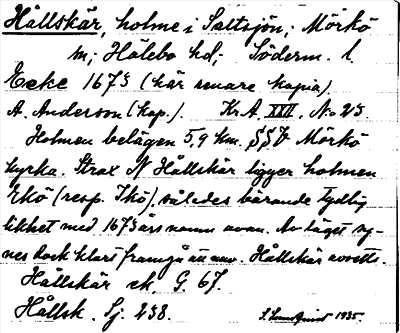 Hållskär, holme i Saltsjön; Mörkö
sn; Hölebo hd; Söderm. l.
Ecke 1675 (här senare kopia)
A. Anderson (kop.). Kr.A. XXII, No 25.
Holmen belägen 5,9 km. SSV Mörkö
kyrka. Strax N Hållskär ligger holmen
Ekö (resp. Ikö), således bärande tydlig
likhet med 1675 års namn ovan. Av läget sy-
nes dock klart framgå att Hållskär avsetts.
Hållskär ek. G. 67.
Hållsk. Sj. 238.
S. Lundqvist 1935.